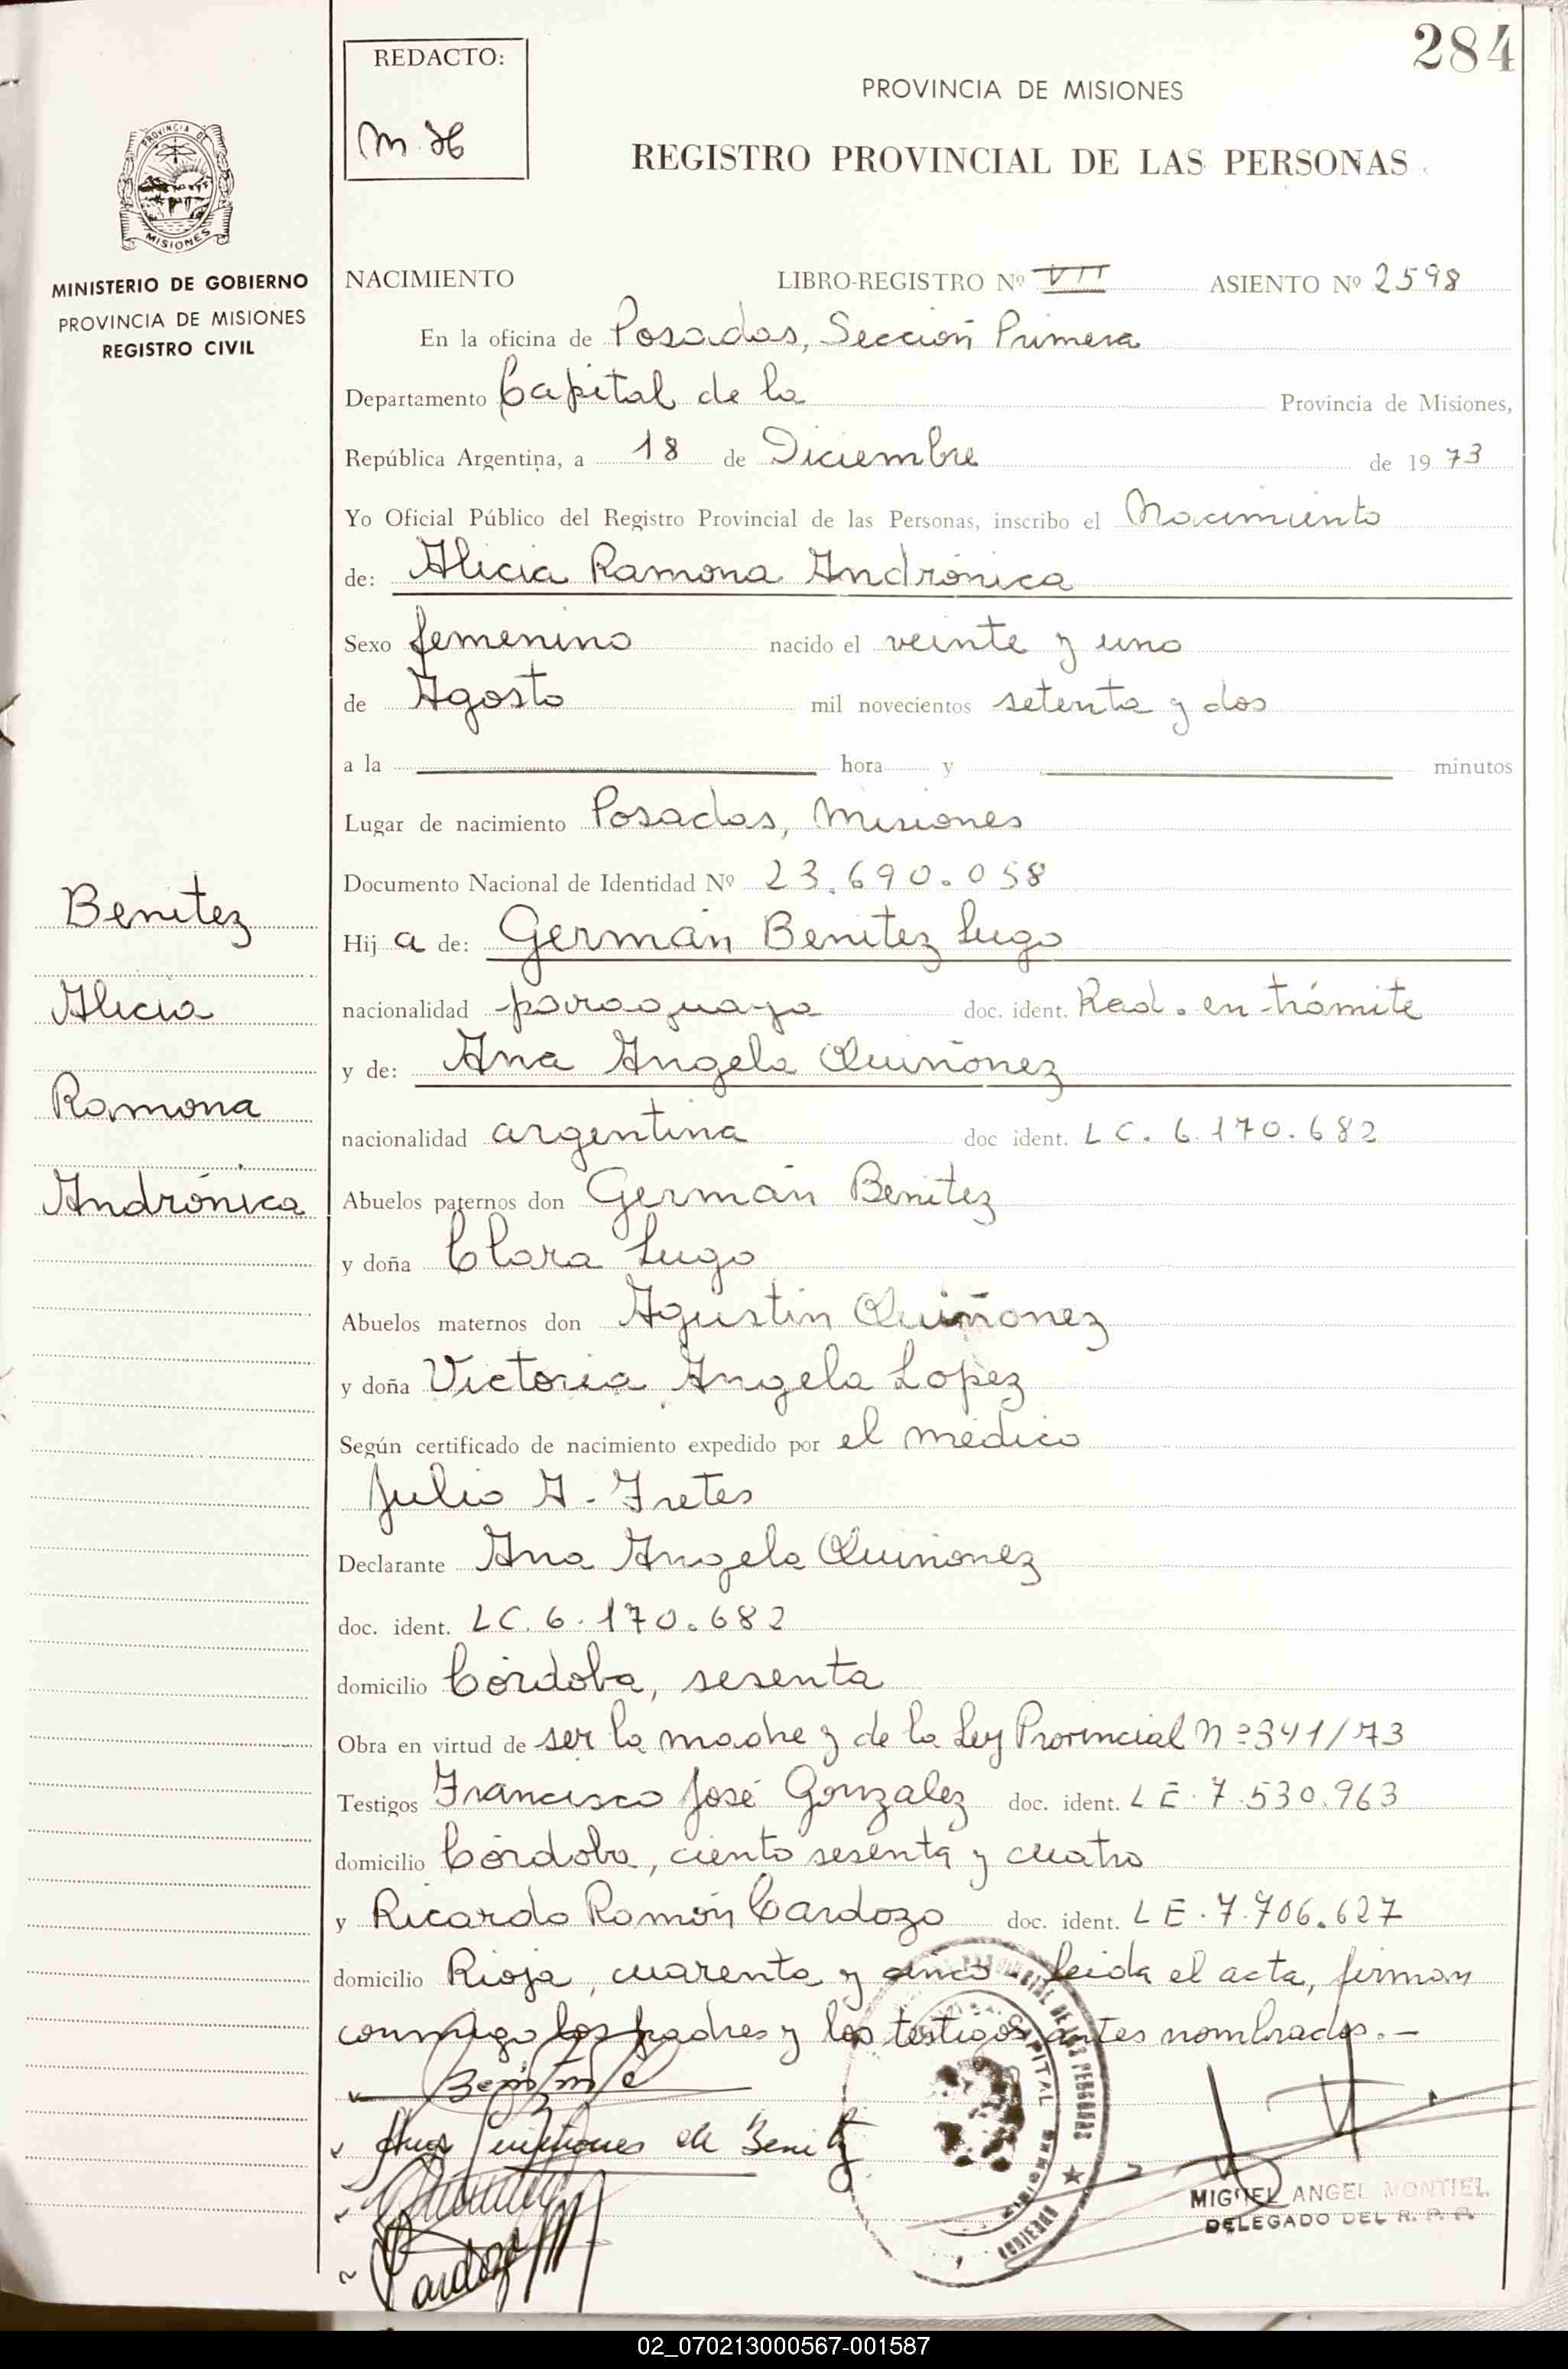 284
REDACTO:
M. H
PROVINCIA DE MISIONES
REGISTRO PROVINCIAL DE LAS PERSONAS
PROVINCIA DE
MISIONES
MINISTERIO DE GOBIERNO
PROVINCIA DE MISIONES
REGISTRO CIVIL
NACIMIENTO LIBRO-REGISTRO Nº VII ASIENTO Nº 2598
En la oficina de Posadas, Sección Primera
Departamento Capital de la Provincia de Misiones,
República Argentina, a 18 de Diciembre de 1973
Yo Oficial Público del Registro Provincial de las Personas, inscribo el Nacimiento
de: Alicia Ramona Andrónica
Sexo femenino nacido el veinte y uno
de Agosto mil novecientos setenta y dos
a la hora y minutos
Lugar de nacimiento Posadas, Misiones
Documento Nacional de Identidad Nº 23.690.058
Benitez
Alicia
Ramona
Andrónica
Hija de: Germán Benitez Lugo
nacionalidad paraguaya doc. ident. Rad. en trámite
y de: Ana Angela Quiñonez
nacionalidad argentina doc ident. LC. 6.170.682
Abuelos paternos don Germán Benitez
y doña Clara Lugo
Abuelos maternos don Agustin Quiñonez
y doña Victoria Angela Lopez
Según certificado de nacimiento expedido por el médico
Julio A. Fretes
Declarante Ana Angela Quiñonez
doc. ident. LC. 6.170.682
domicilio Córdoba, sesenta
Obra en virtud de ser la madre y de la Ley Provincial Nº 341/73
Testigos Francisco José Gonzalez doc. ident. LE. 7.530.963
domicilio Córdoba, ciento sesenta y cuatro
y Ricardo Ramón Cardozo doc. ident. LE. 7.706.627
domicilio Rioja, cuarenta y cinco. leida el acta, firman
conmigo los padres y los testigos antes nombrados.-
de Benitez
Cardozo
CAPITAL
MIGUEL ANGEL MONTIEL
DELEGADO DEL R. P. P.
02_070213000567-001587